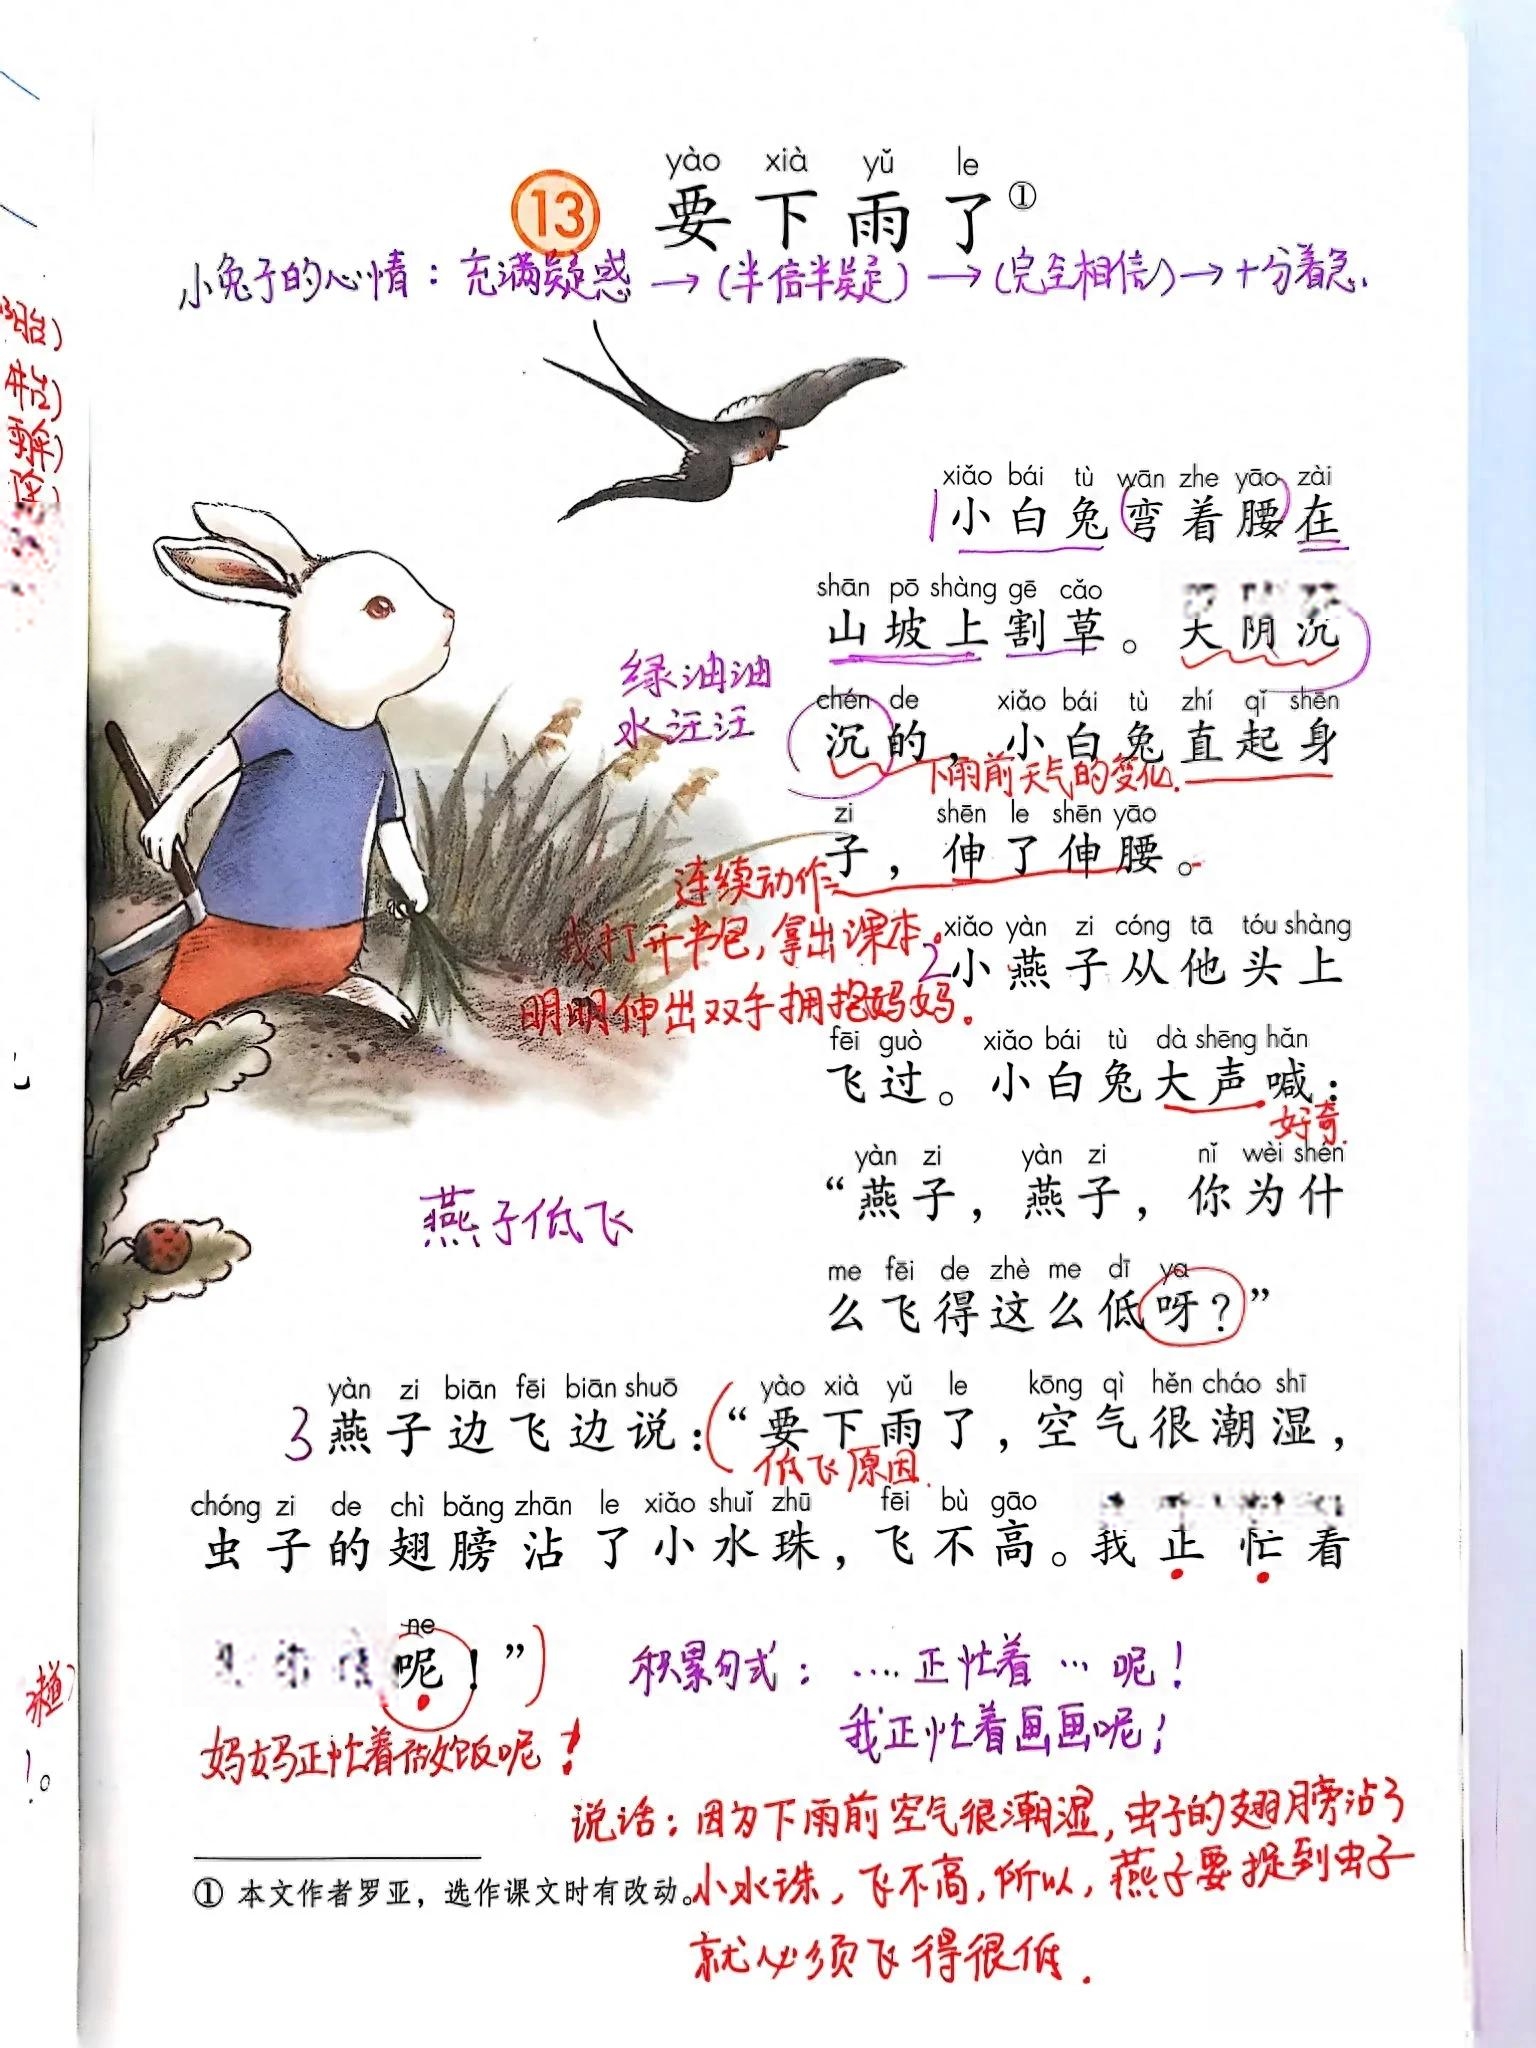 yào xià yǔ le
13 要下雨了①
小兔子的心情：充满疑惑→(半信半疑)→(完全相信)→十分着急.
xiǎo bái tù wān zhe yāo zài
1小白兔弯着腰在
shān pō shàng gē cǎo
山坡上割草。大阴沉
绿油油
水汪汪
chén de xiǎo bái tù zhí qǐ shēn
沉的，小白兔直起身
下雨前天气的变化.
zi shēn le shēn yāo
子，伸了伸腰。
连续动作
我打开书包，拿出课本。
xiǎo yàn zi cóng tā tóu shàng
2小燕子从他头上
明明伸出双手拥抱妈妈。
fēi guò xiǎo bái tù dà shēng hǎn
飞过。小白兔大声喊：
好奇.
yàn zi yàn zi nǐ wèi shén
“燕子，燕子，你为什
燕子低飞
me fēi de zhè me dī ya
么飞得这么低呀？”
yàn zi biān fēi biān shuō yào xià yǔ le kōng qì hěn cháo shī
3燕子边飞边说：(“要下雨了，空气很潮湿，
低飞原因.
chóng zi de chì bǎng zhān le xiǎo shuǐ zhū fēi bù gāo
虫子的翅膀沾了小水珠，飞不高。我正忙着
ne
呢！”)
积累句式：….正忙着…呢！
我正忙着画画呢！
妈妈正忙着做饭呢！
说话：因为下雨前空气很潮湿，虫子的翅膀沾了
① 本文作者罗亚，选作课文时有改动。
小水诛，飞不高，所以，燕子要捉到虫子
就必须飞得很低.